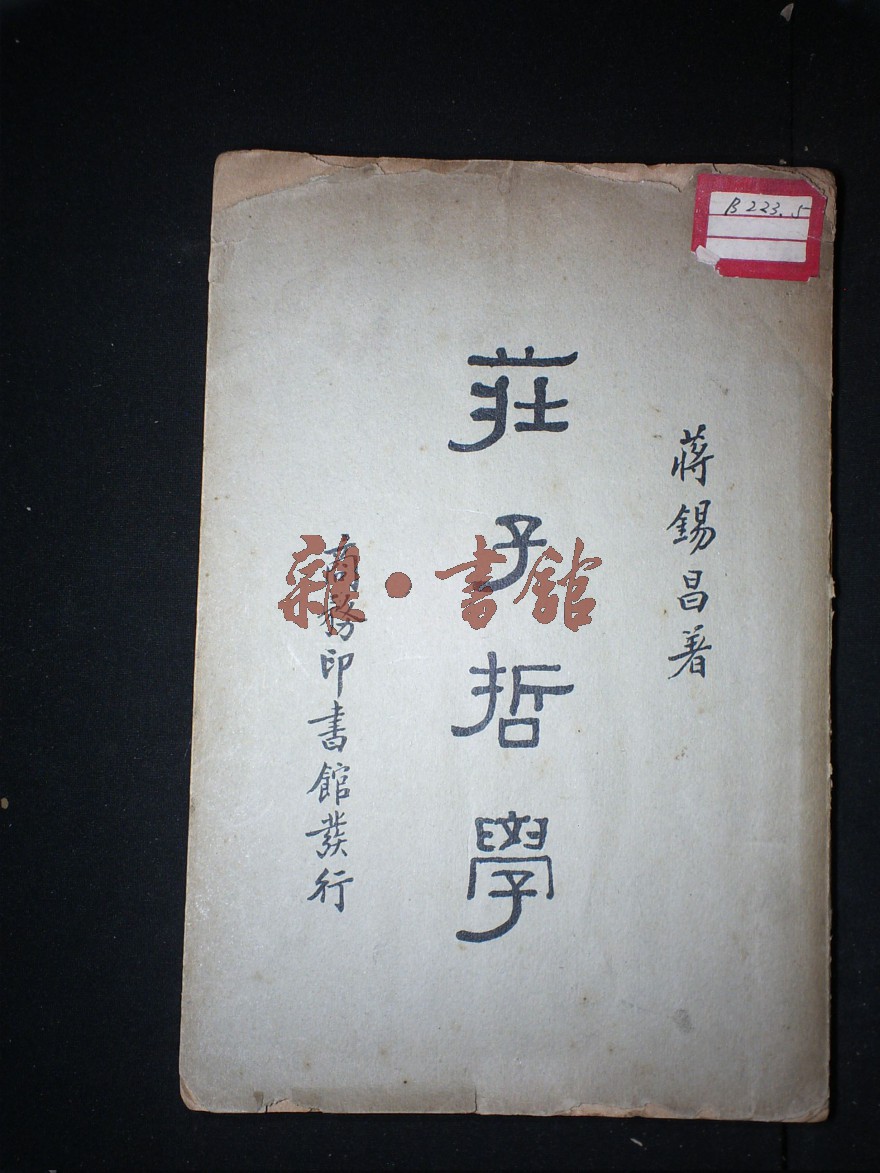 B223.5
蔣錫昌著
莊子哲學
商務印書館發行
雜·書館